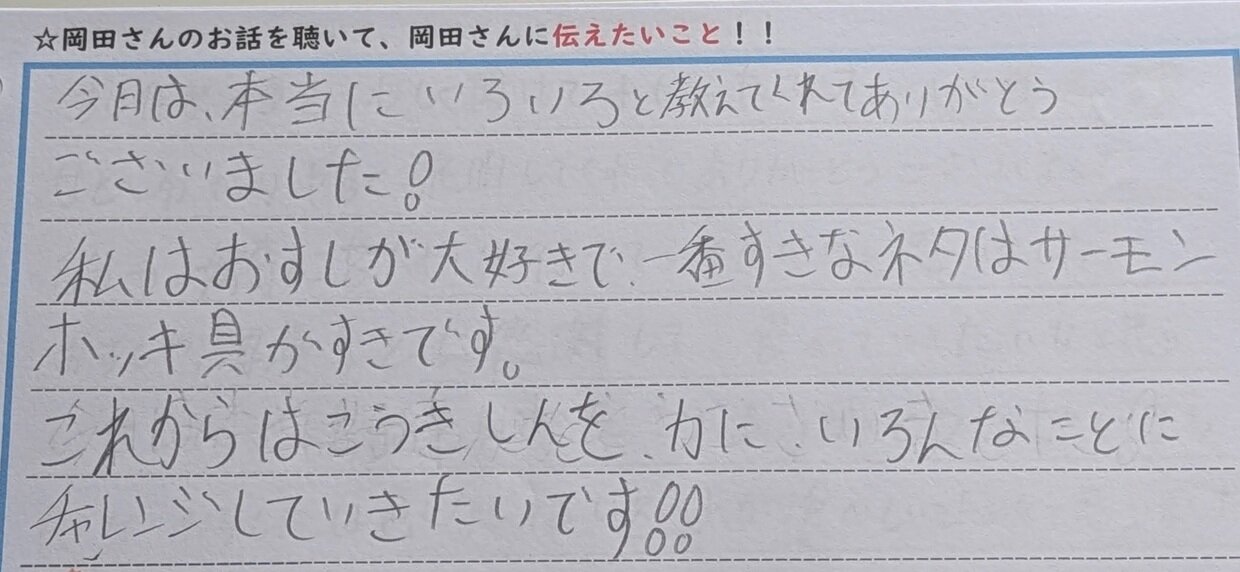 ☆岡田さんのお話を聴いて、岡田さんに伝えたいこと！！
今月は、本当にいろいろと教えてくれてありがとう
ございました！
私はおすしが大好きで、一番すきなネタはサーモン
ホッキ具がすきです。
これからはこうきしんを、力に、いろんなことに
チャレンジしていきたいです！！